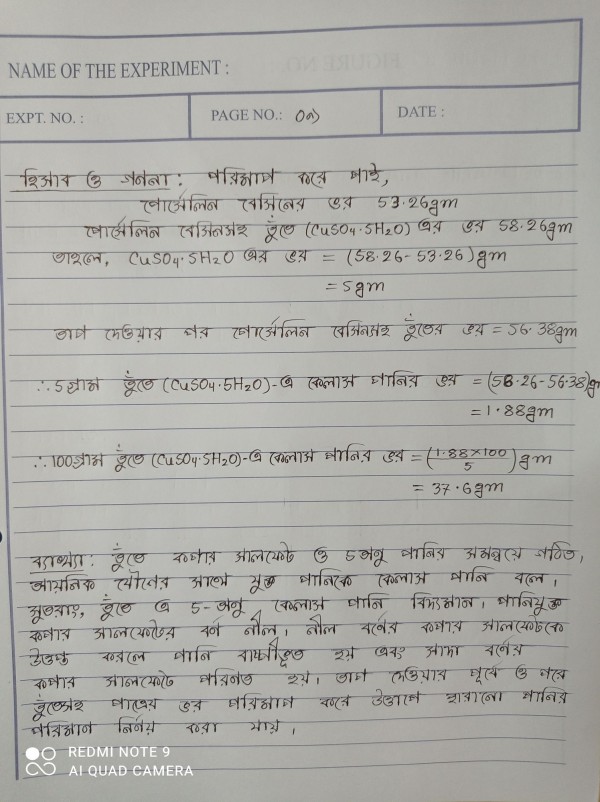 NAME OF THE EXPERIMENT :
EXPT. NO. :
PAGE NO.: 01
DATE :
হিসাব ও গননা : পরিমাপ করে পাই,
পোর্সেলিন বেসিনের ভর 53.26gm
পোর্সেলিন বেসিনসহ তুঁতে (CuSO₄.5H₂O) এর ভর 58.26gm
তাহলে, CuSO₄.5H₂O এর ভর = (58.26-53.26)gm
= 5gm
তাপ দেওয়ার পর পোর্সেলিন বেসিনসহ তুঁতের ভর = 56.38gm
∴ 5গ্রাম তুঁতে (CuSO₄.5H₂O)-এ কেলাস পানির ভর = (58.26-56.38)gm
= 1.88gm
∴ 100গ্রাম তুঁতে (CuSO₄.5H₂O)-এ কেলাস পানির ভর = (1.88×100/5)gm
= 37.6gm
ব্যাখ্যা : তুঁতে কপার সালফেট ও ৫অনু পানির সমন্বয়ে গঠিত,
আয়নিক যৌগের সাথে যুক্ত পানিকে কেলাস পানি বলে।
সুতরাং, তুঁতে এ ৫-অনু কেলাস পানি বিদ্যমান। পানিযুক্ত
কপার সালফেটের বর্ন নীল। নীল বর্নের কপার সালফেটকে
উত্তপ্ত করলে পানি বাষ্পীভূত হয় এবং সাদা বর্নের
কপার সালফেটে পরিনত হয়। তাপ দেওয়ার পূর্বে ও পরে
তুঁতেসহ পাত্রের ভর পরিমাপ করে উত্তাপে হারানো পানির
পরিমান নির্নয় করা যায়।
REDMI NOTE 9
AI QUAD CAMERA